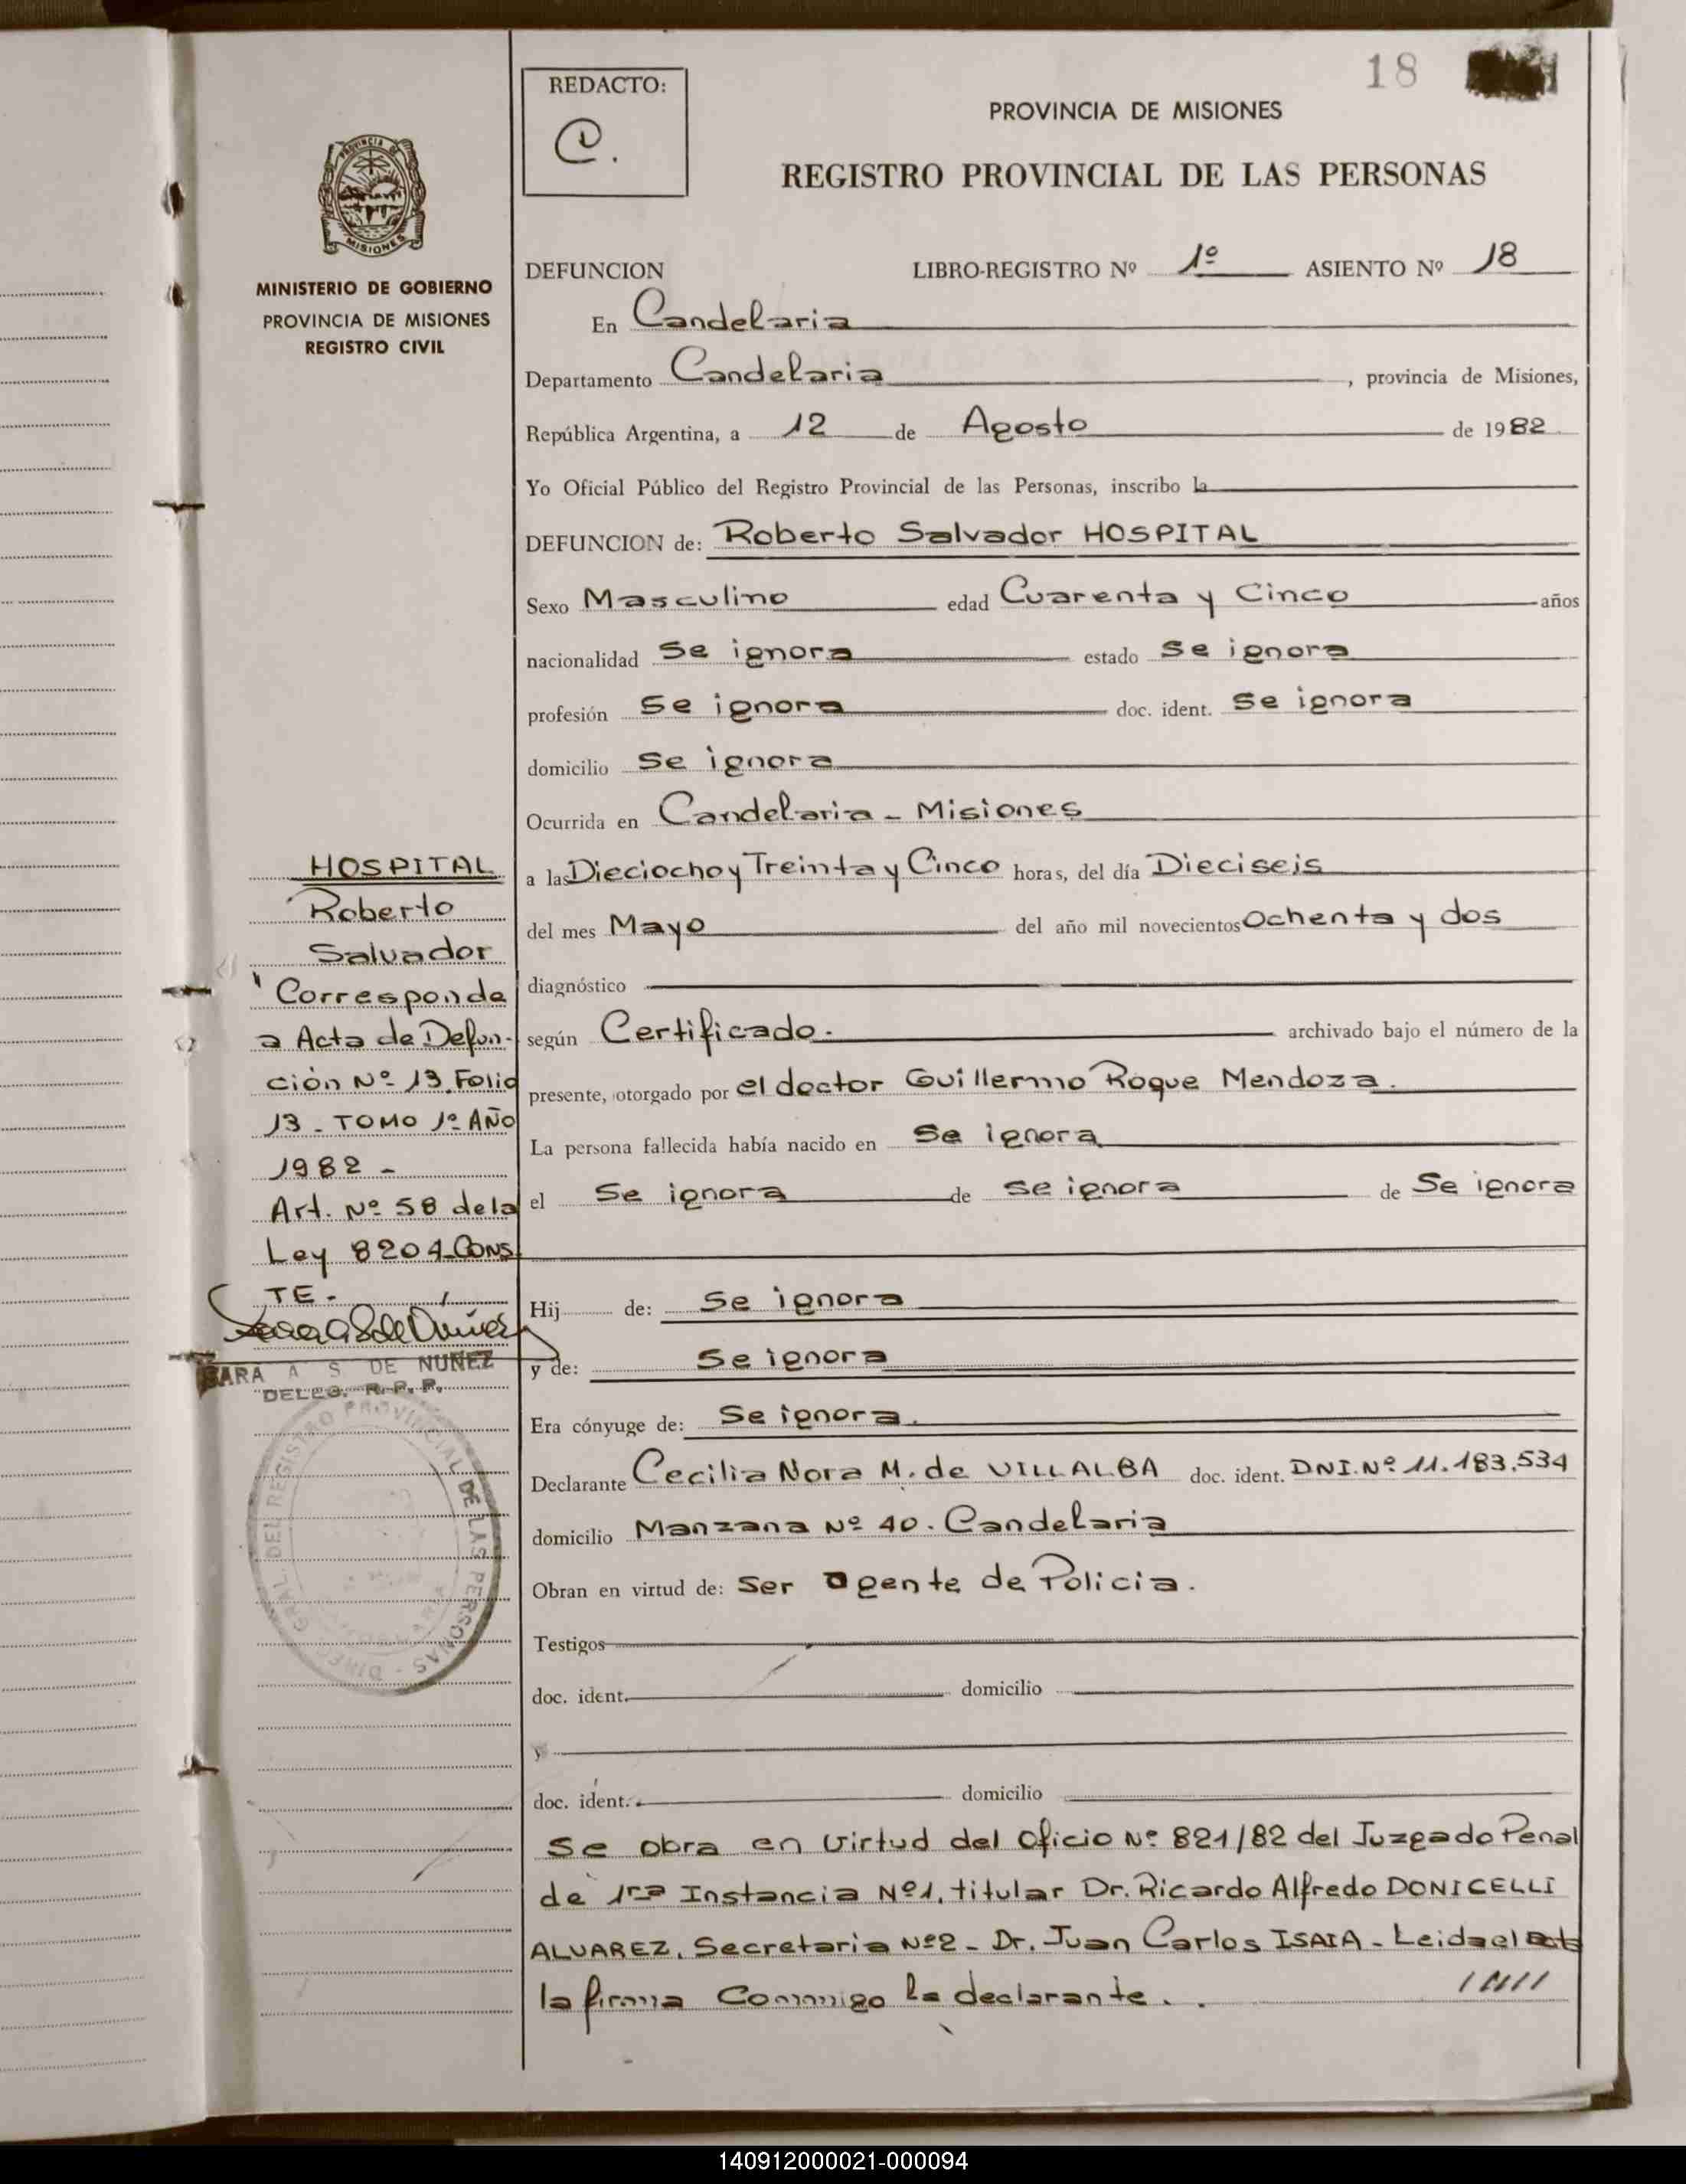 18
REDACTO:
PROVINCIA DE MISIONES
REGISTRO PROVINCIAL DE LAS PERSONAS
DEFUNCION LIBRO-REGISTRO Nº 1º ASIENTO Nº 18
En Candelaria
Departamento Candelaria, provincia de Misiones,
República Argentina, a 12 de Agosto de 1982
Yo Oficial Público del Registro Provincial de las Personas, inscribo la
DEFUNCION de: Roberto Salvador HOSPITAL
Sexo Masculino edad Cuarenta y Cinco años
nacionalidad Se ignora estado Se ignora
profesión Se ignora doc. ident. Se ignora
domicilio Se ignora
Ocurrida en Candelaria - Misiones
a las Dieciocho y Treinta y Cinco horas, del día Dieciseis
del mes Mayo del año mil novecientos Ochenta y dos
diagnóstico
según Certificado. archivado bajo el número de la
presente, otorgado por el doctor Guillermo Roque Mendoza.
La persona fallecida había nacido en Se ignora
el Se ignora de Se ignora de Se ignora
Hij de: Se ignora
y de: Se ignora
Era cónyuge de: Se ignora.
Declarante Cecilia Nora M. de VILLALBA doc. ident. DNI. Nº 11.183.534
domicilio Manzana Nº 40. Candelaria
Obran en virtud de: Ser agente de Policia.
Testigos
doc. ident. domicilio
y
doc. ident. domicilio
Se obra en virtud del Oficio Nº 821/82 del Juzgado Penal
de 1ra Instancia Nº1, titular Dr. Ricardo Alfredo DONICELLI
ALVAREZ, Secretaria Nº2 - Dr. Juan Carlos ISAIA - Leida el
la firma Conmigo la declarante.
MISIONES
MINISTERIO DE GOBIERNO
PROVINCIA DE MISIONES
REGISTRO CIVIL
HOSPITAL
Roberto
Salvador
Corresponde
a Acta de Defun-
ción Nº 13. Folio
13 - TOMO 1º AÑO
1982 -
Art. Nº 58 de la
Ley 8204-CONS
TE-
SARA A S. DE NUÑEZ
DELEG. R. P. P.
REGISTRO PROVINCIAL DE LAS PERSONAS
140912000021-000094